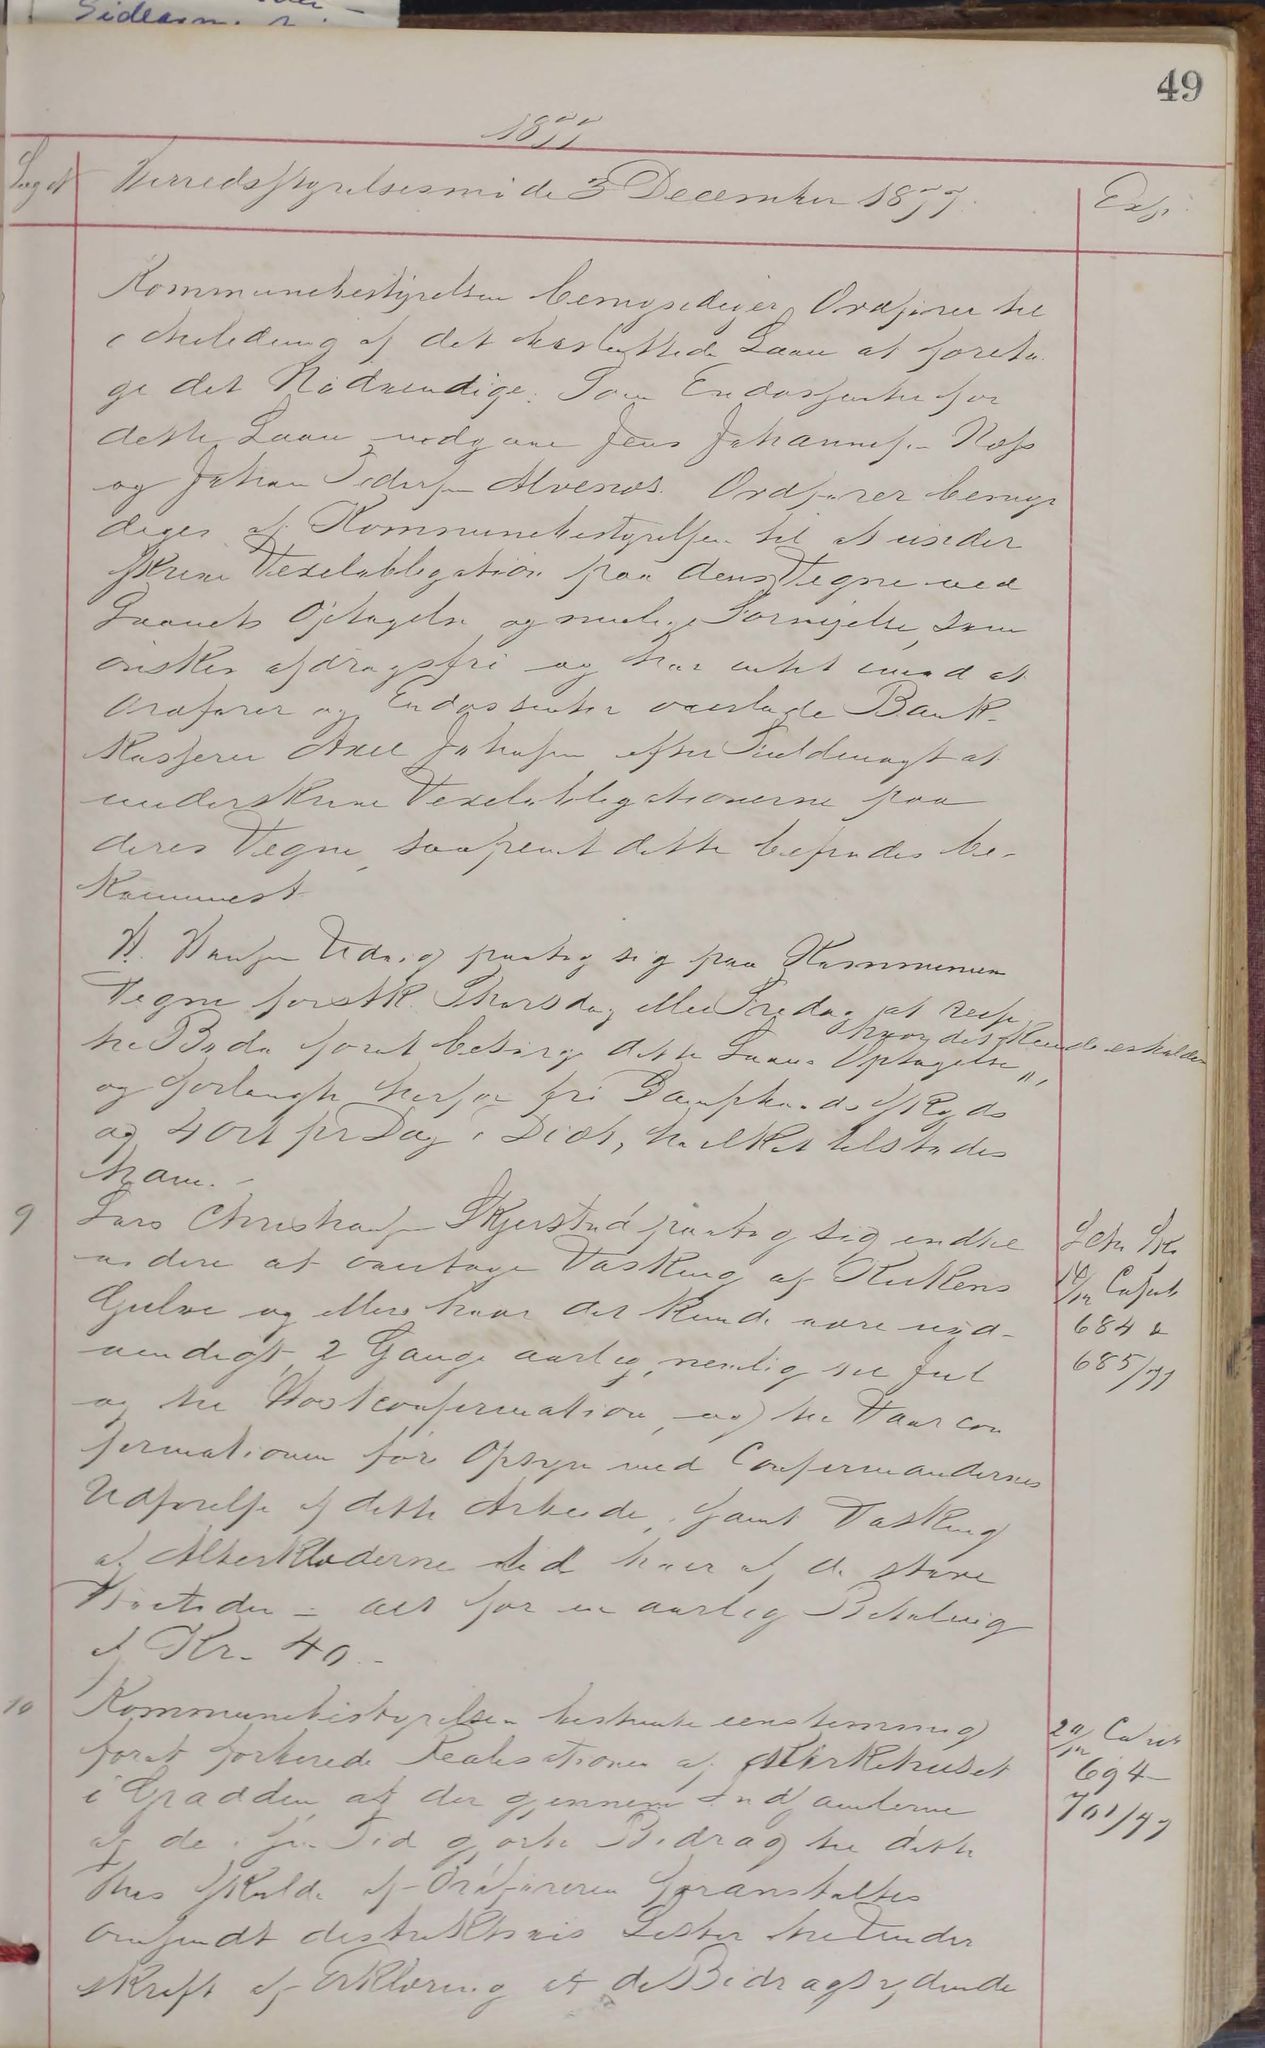 Sidearm. r.
49
1877
Sag N
Herredsstyrelsesmöde 3 December 1877.
Exp.
Kommunebestyrelsen bemyndiger Ordförer til
i Anledning af det besluttede Laan at foreta-
ge det Nödvendige. Som Endossenter for
dette Laan vedgaar Jens Johannesen Næss
og Johan Pedersen Alvenes. Ordförer bemyn
diges af Kommunebestyrelsen til at under
skrive Vexelobligation paa dens Vegne ved
Laanets Optagelse og mulige Fornyelse, som
önskes afdragsfri og har intet imod at
Ordförer og Endossenter overlade Bank-
kasserer Axel Johnsen efter Fuldmagt at
underskrive Vexelobligationerne paa
deres Vegne, saafremt dette befindes be-
kvemmest
H. Hansen paatog sig paa Kommunens
Vegne förstk. Thorsdag eller Fredag at reise
til Bodö foret besörge dette Laans Optagelse „
hvor det kunde erholdes
og forlangte herfor fri Dampskibs Skyds
og 4 Ort pr Dag i Diöt, hvilket tilstodes
ham. -
9
Lars Christensen Skjerstad paatog sig indtil
videre at overtage Vaskning af Kirkens
Gulve og ellers hvor det kunde være nöd-
vendigt, 2 Gange aarlig, nemlig til Jul
og til Höstconfirmation, og til Vaarcon
firmationen före Opsyn med Confirmandernes
Udförelse af dette Arbeide, samt Vaskning
af Alterklæderne ved hver af de store
Höitider - alt for en aarlig Betaling
af Kr. 40. -
684 &
685/77
10
Kommunebestyrelsen besluttede eenstemmig
foret forberede Realisationen af Kirkehuset
i Graddis, at der gjennem Indsamlerne
af de i sin Tid gjorte Bidrag til dette
Hus skulde af Ordföreren foranstaltes
omsendt distriktsvis Lister til Under
skrift af Erklæring at de Bidragsydende
694 -
701/77